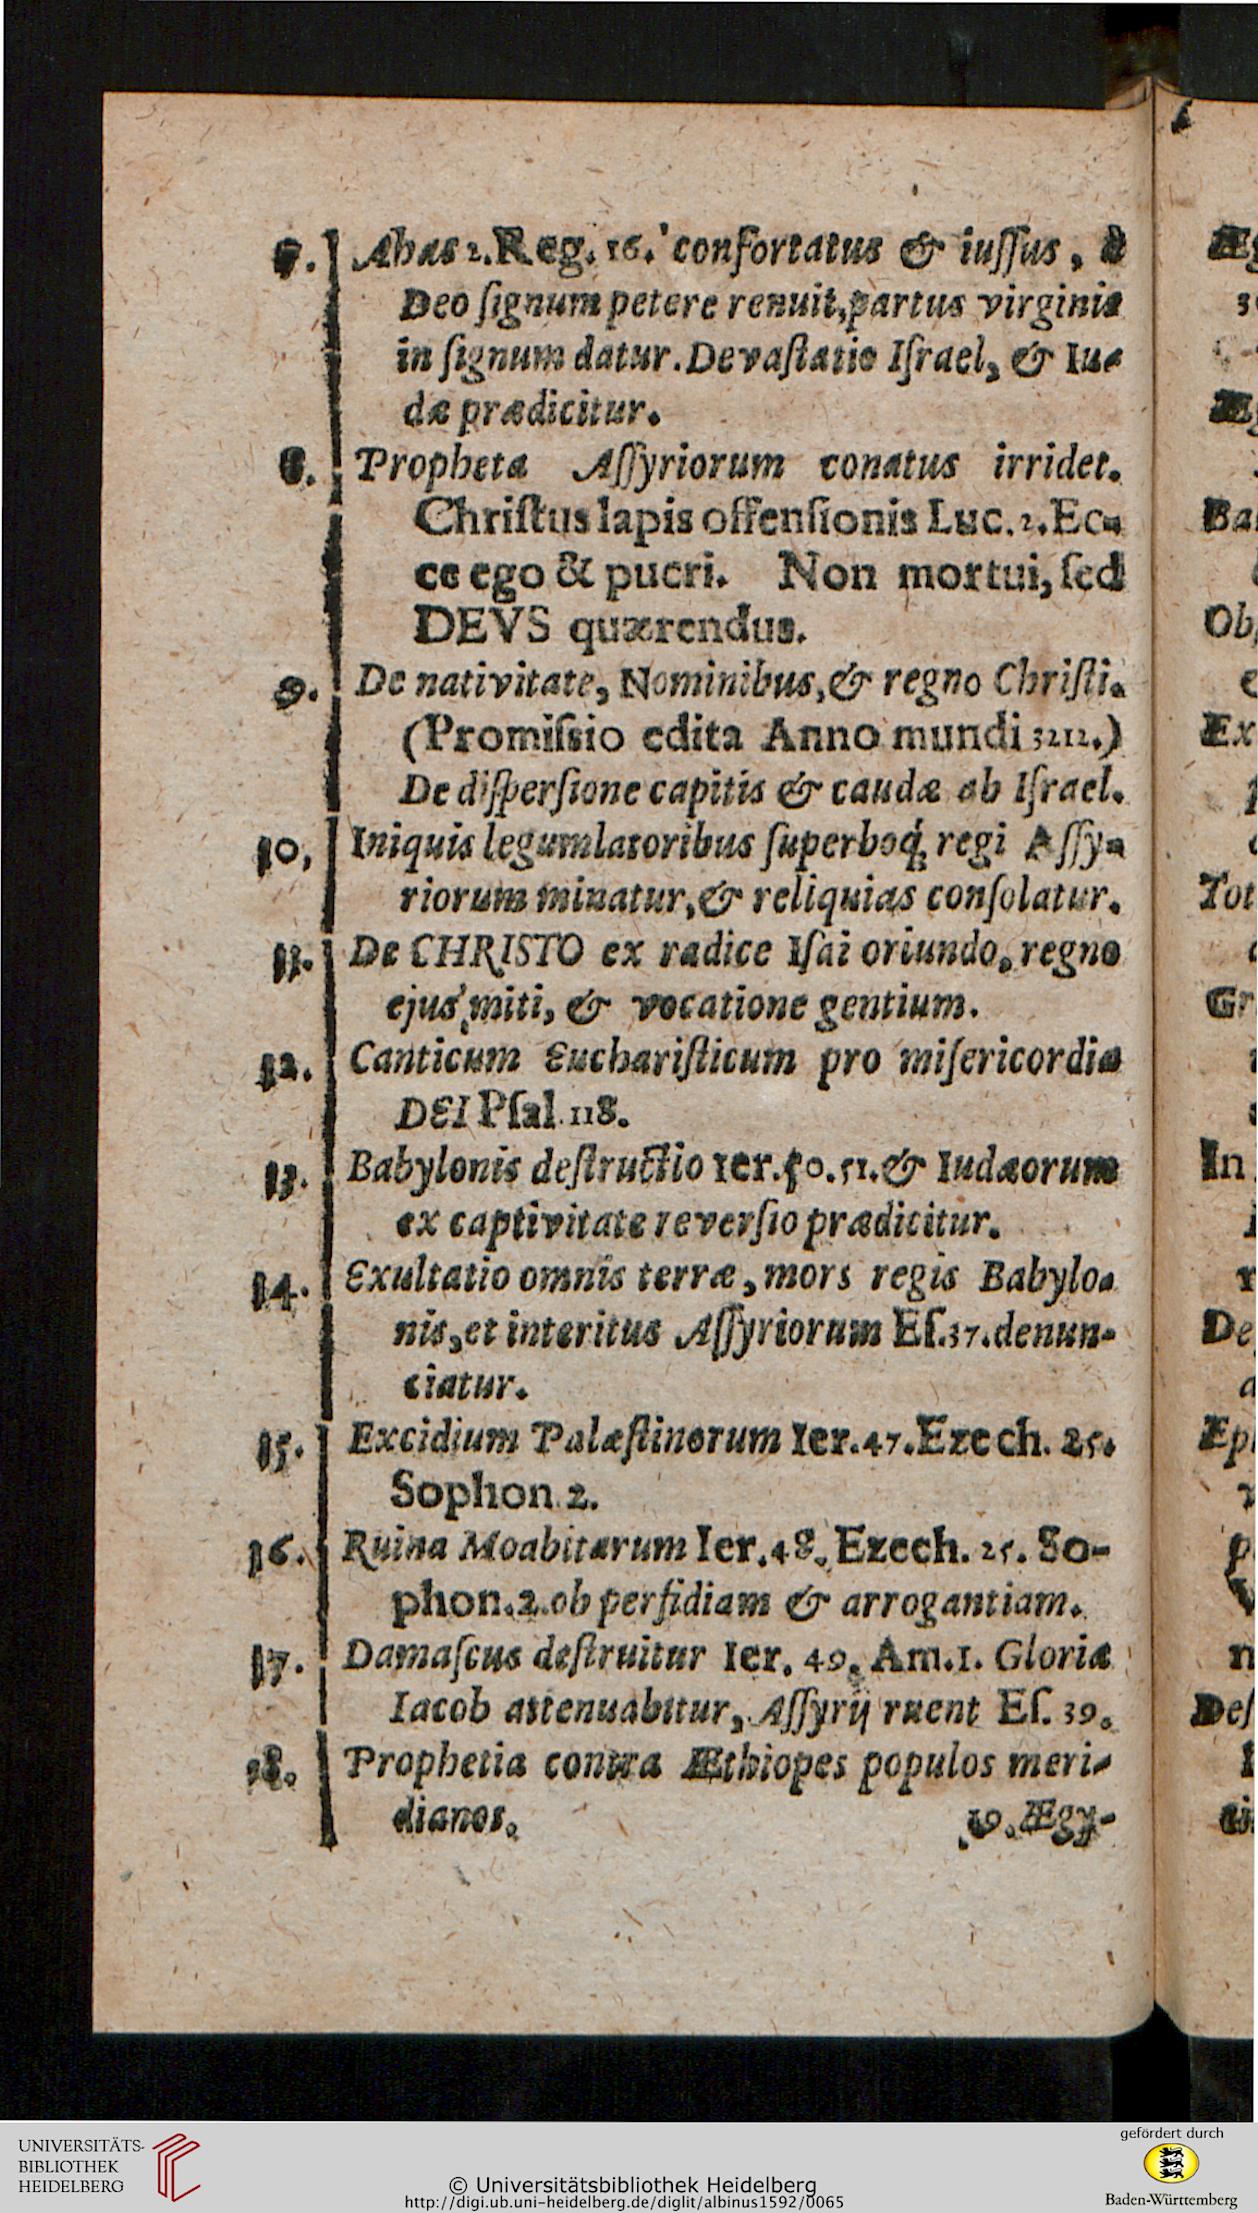 7. Ahas 2. Reg. 16. confortatus & iuſſus, à
Deo ſignum petere renuit, partus virginis
in ſignum datur. Devaſtatio Iſrael, & Iu-
dæ prædicitur.
8. Propheta Aſſyriorum conatus irridet.
Chriſtus lapis offenſionis Luc. 2. Ec-
ce ego & pueri. Non mortui, ſed
DEVS quærendus.
9. De nativitate, Nominibus, & regno Chriſti.
(Promiſsio edita Anno mundi 3211.)
De diſperſione capitis & caudæ ab Iſrael.
10, Iniquis legumlatoribus ſuperboq; regi Aſſy-
riorum minatur, & reliquias conſolatur.
11. De CHRISTO ex radice Iſai oriundo, regno
ejus miti, & vocatione gentium.
12. Canticum Euchariſticum pro miſericordia
DEI Pſal. 118.
13. Babylonis deſtructio Ier. 50. 51. & Iudæorum
ex captivitate reverſio prædicitur.
14. Exultatio omnis terræ, mors regis Babylo-
nis, et interitus Aſſyriorum Eſ. 37. denun-
ciatur.
15. Excidium Palæſtinorum Ier. 47. Ezech. 25.
Sophon. 2.
16. Ruina Moabitarum Ier. 48. Ezech. 25. So-
phon. 2. ob perfidiam & arrogantiam.
17. Damaſcus deſtruitur Ier. 49. Am. 1. Gloria
Iacob attenuabitur, Aſſyrij ruent Eſ. 39.
18. Prophetia contra Æthiopes populos meri-
dianos.
19. Ægy-
UNIVERSITÄTS-
BIBLIOTHEK
HEIDELBERG
© Universitätsbibliothek Heidelberg
http://digi.ub.uni-heidelberg.de/diglit/albinus1592/0065
gefördert durch
Baden-Württemberg